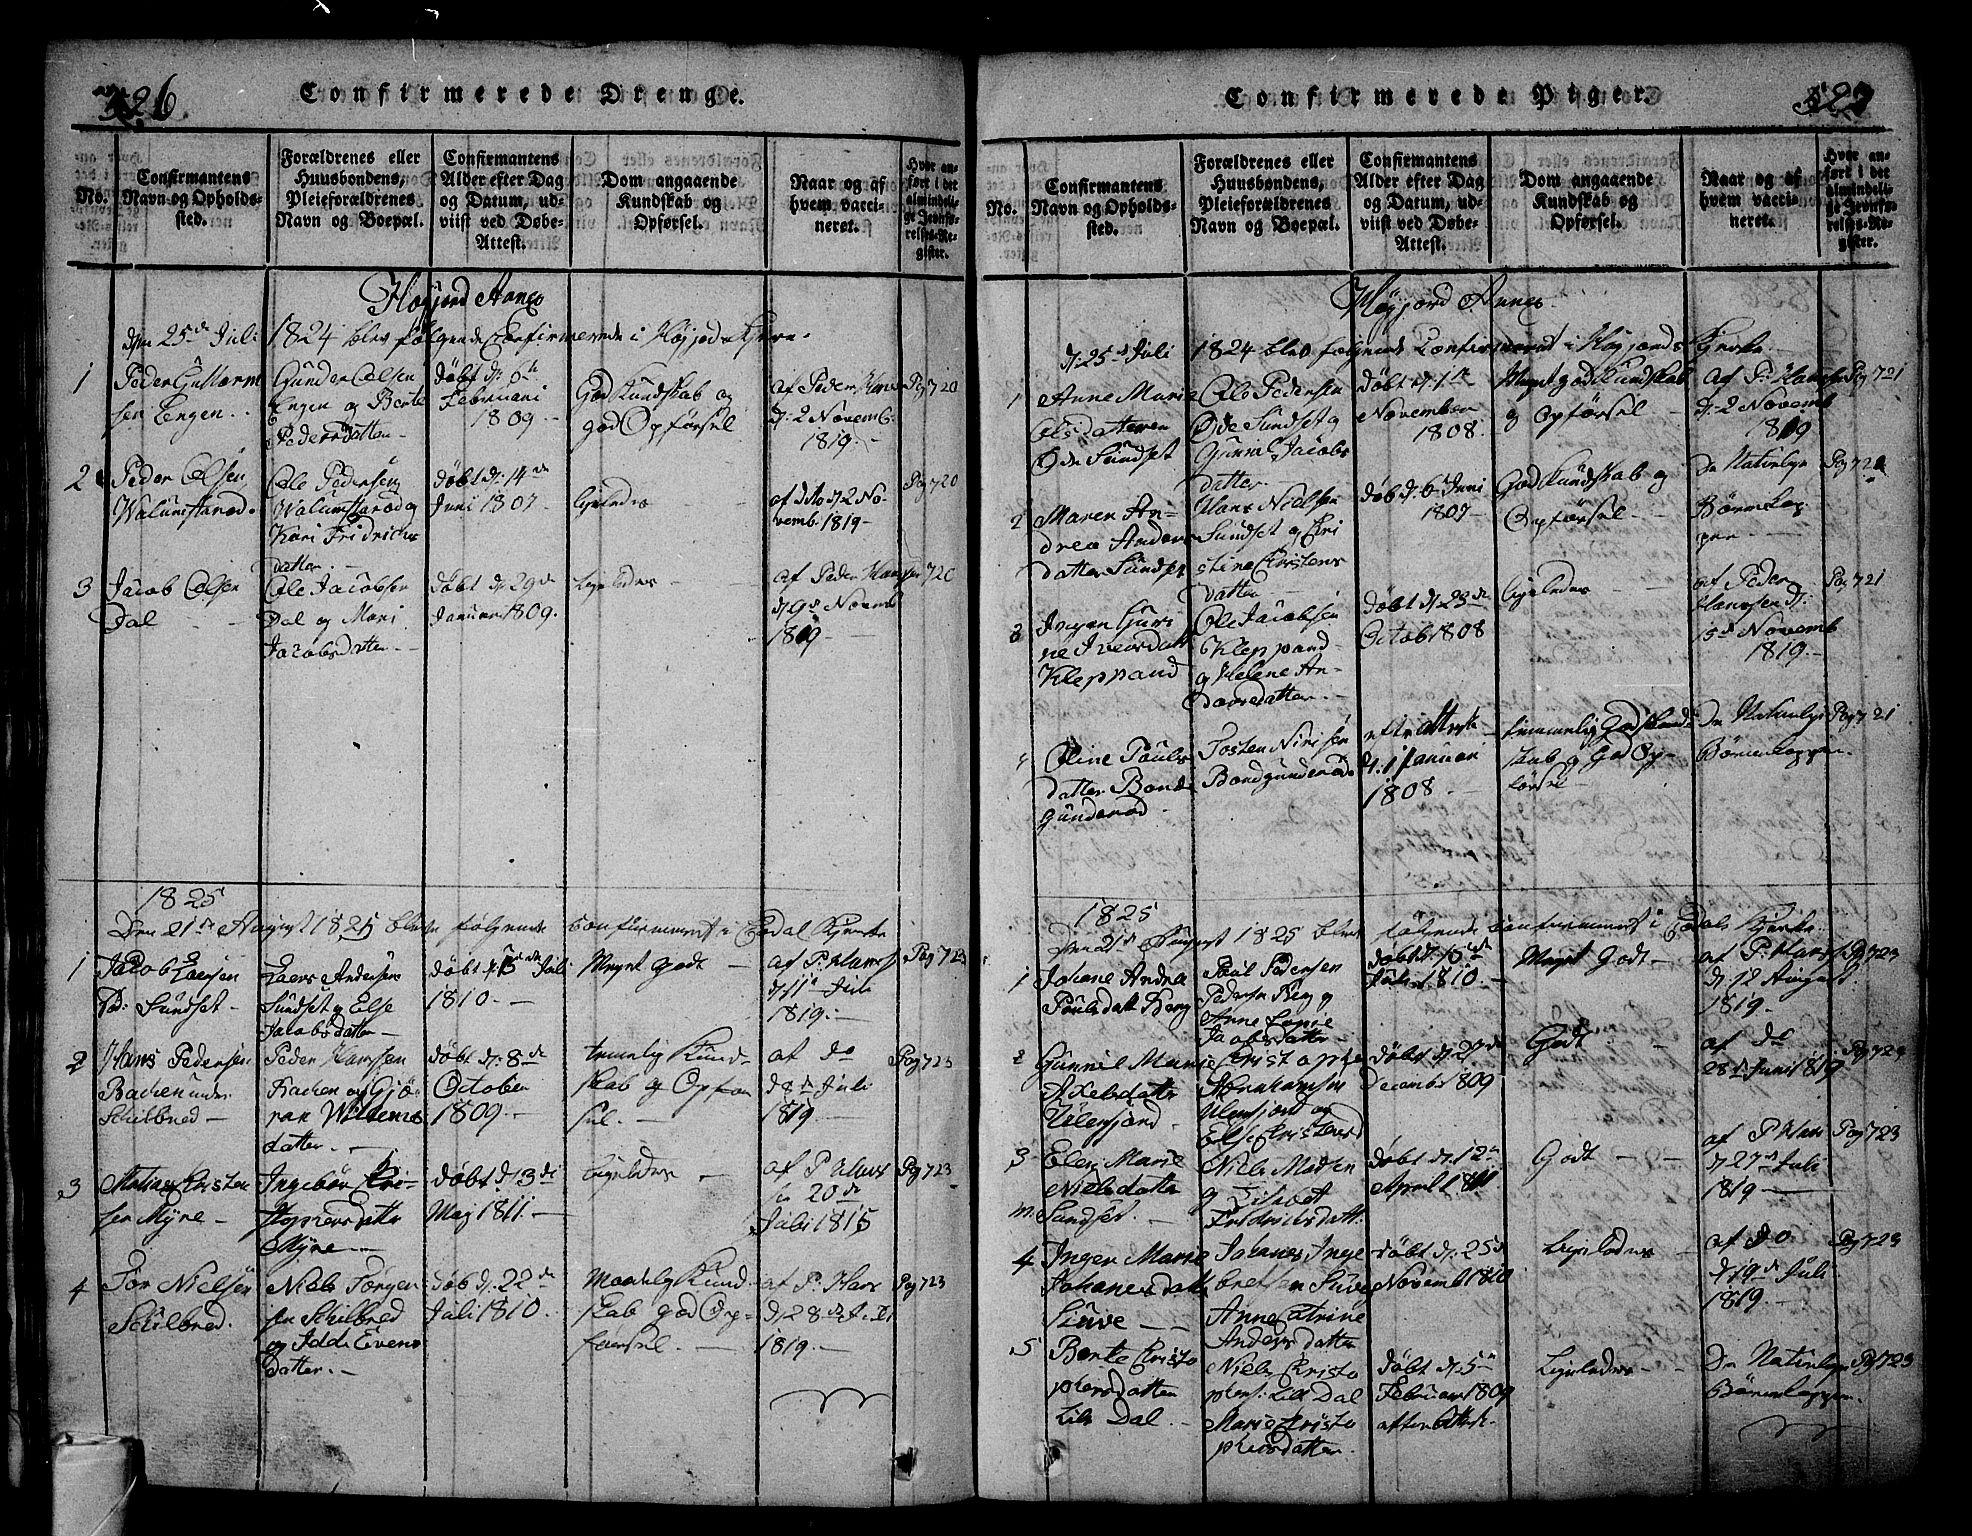 326.
Confirmerede Drenge.
No.
Confirmantens
Navn og Opholds-
sted.
Forældrenes eller
Huusbondens,
Pleieforældrenes
Navn og Boepæl.
Confirmantens
Alder efter Dag
og Datum, ud-
viist ved Døbe-
Attest.
Dom angaaende
Kundskab og
Opførsel.
Naar og af
hvem vacci-
neret.
Hvor an-
ført i det
almindeli-
ge Jevnfø-
relses-Re-
gister.
Høyjord Annex
den 25de Juli 1824 blev følgende Confirmerede i Høyjords Kjerke
1
Peder Guttorm
sen Engen
Gunder Olsen
Engen og Berte
Pedersdatter
døbt d: 6te
Februari
1809
God Kundskab og
god Opførsel
af Peder Hans
d: 2 Novemb
1819
Pag 720
2
Peder Olsen
Walumsrød
Ole Pedersen
Walumsrød og
Kari Fridrichs
datter
døbt d: 14de
Juni 1807
Ligeledes
af dito d: 2 No-
vemb 1819
Pag 720
3
Jacob Olsen
Dal
Ole Jacobsen
Dal og Mari
Jacobsdatter
døbt d: 29de
Januar 1809.
Ligeledes
af Peder Hansen
d: 9de Novemb
1819
720
1825
Den 21de August 1825 bleve følgende Confirmeret i Kjerke
1
Jacob Larsen
Sundset
Lars Andersen
Sundset og Else
Jacobsdatter
døbt d: Juli
1810
Meget Godt
af P: Hans
d: 11te Juli
1819
Pag 723
2
Hans Pedersen
Bachen under
Schilbred
Peder Hanssen
Bachen og Gjø
ran Willems
datter
døbt d: 8de
October
1809
temmelig Kund-
skab og Opfør
sel
af do
d 8de Juli
1819
Pag 723
3
Matias Christen
sen Myre
Ingebor Kri-
stophersdatter
Myre
døbt d: 3de
May 1811
Ligeledes
af P Hans
20de
Juli 1815
Pag 723
4
Tor Nielsen
Schilbred.
Niels Jørgen
sen Schilbred
og Idde Evens
datter
døb d: 22de
Juli 1810
Maadelig Kund-
skab god Op-
førsel
af P: Hans
d: 28de Juli
1819
Pag 723
327
Confirmerede Piger.
No.
Confirmantens
Navn og Opholds-
sted.
Forældrenes eller
Huusbondens,
Pleieforældrenes
Navn og Boepæl.
Confirmantens
Alder efter Dag
og Datum, ud-
viist ved Døbe-
Attest.
Dom angaaende
Kundskab og
Opførsel.
Naar og af
hvem vacci-
neret.
Hvor an-
ført i det
almindeli-
ge Jevnfø-
relses-Re-
gister.
Høyjord Annex
d: 25de Juli 1824 blev følgende Confirmeret i Høyjords Kjerke
1
Anne Marie
Olsdatter
Øde Sundset
Ole Pedersen
Øde Sundset og
Gunnil Jacobs
datter
døbt d: 1te
November
1808
Meget god Kundskab
og Opførsel
af P: Hansen
d: 2 Novemb
1819
Pag 721
2
Maren An-
drea Anders
datter Sundset
Hans Nielsen
Sundset og Chri
stine Christens
datter
døb d: 6te Juni
1807
God Kundskab og
Opførsel
De Naturlige
Børnekop
per
Pag 721
3
Ingen Guri
ne Iversdatt
Kleppand
Ole Jacobsen
Kleppand
og Helene An-
dorsdatter
døbt d: 23de
Octob 1808
Ligeledes
af Peder
Hanssen d:
15de Novemb
1819
Pag 721
Oline Pouls
datter Bonde
gunderød
Tosten
Bondgunderød
efter attest
d: 1 Januari
1808
temmelig God Kund
skab og God Op-
førsel
De Naturlige
Børnekopper
Pag 721
1825
Den 21de August 1825 blev følgende Confirmeret i Kjerke
1
Johane Andrea
Poulsdatt Berg
Poul Pedersen
Berg og
Anne
Jacobsdatter
døbt d:
Juli 1810
Meget Godt
af P: Hans
d: 12 August
1819
Pag 723
2
Gunnil Marie
Axelsdatter
Christophe
Abrahamsen
og
Else Christens
døbt d: 27de
Decemb 1809
Godt
af do
28de Juni 1819
Pag 723
3
Elen Marie
Nielsdatter
Sundset
Niels Madsen
og
Fridrichsdatt
døbt d: 12te
April 1811
Godt
af P Hans
d 27de Juli
1819
Pag 723
4
Inger Marie
Johanesdatt
Stuve
Johanes Inge
bretsen Stuve
Anne Catrine
Andersdatter
døbt d: 25de
Novemb 1810
Ligeledes
af do
d: 19de Juli
1819
Pag 723
5
Berte Christo
phersdatter
Lile Dal
Niels Christo
phers: Lile Dal
Marie Christo
phersdatter
døbt d: 5te
Februar 1809
efter Attest
Ligeledes
De Naturlige
Børnekopper
Pag 723